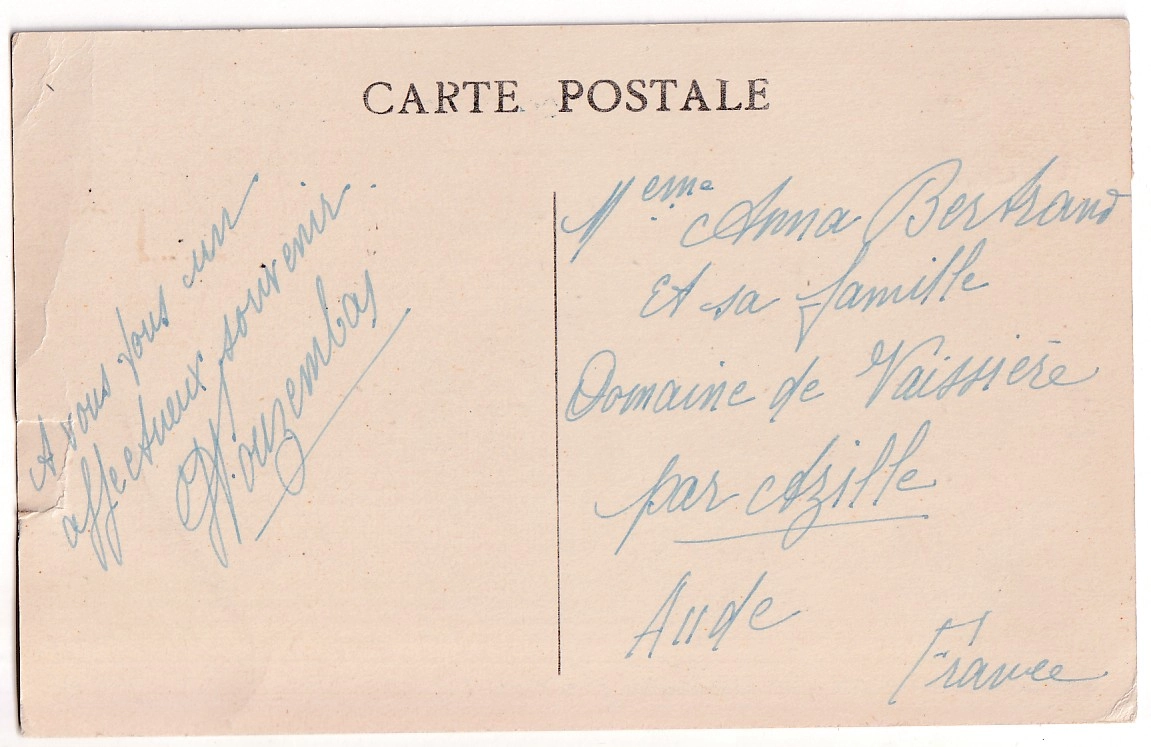 CARTE POSTALE
A vous tous un
affectueux souvenir.
Meme Anna Bertrand
Et sa famille
Domaine de Vaissière
par Azille
Aude
France